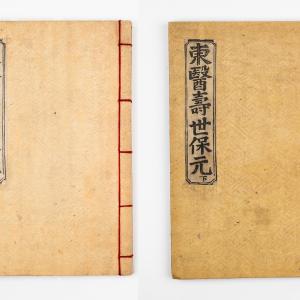 東醫壽世保元
下